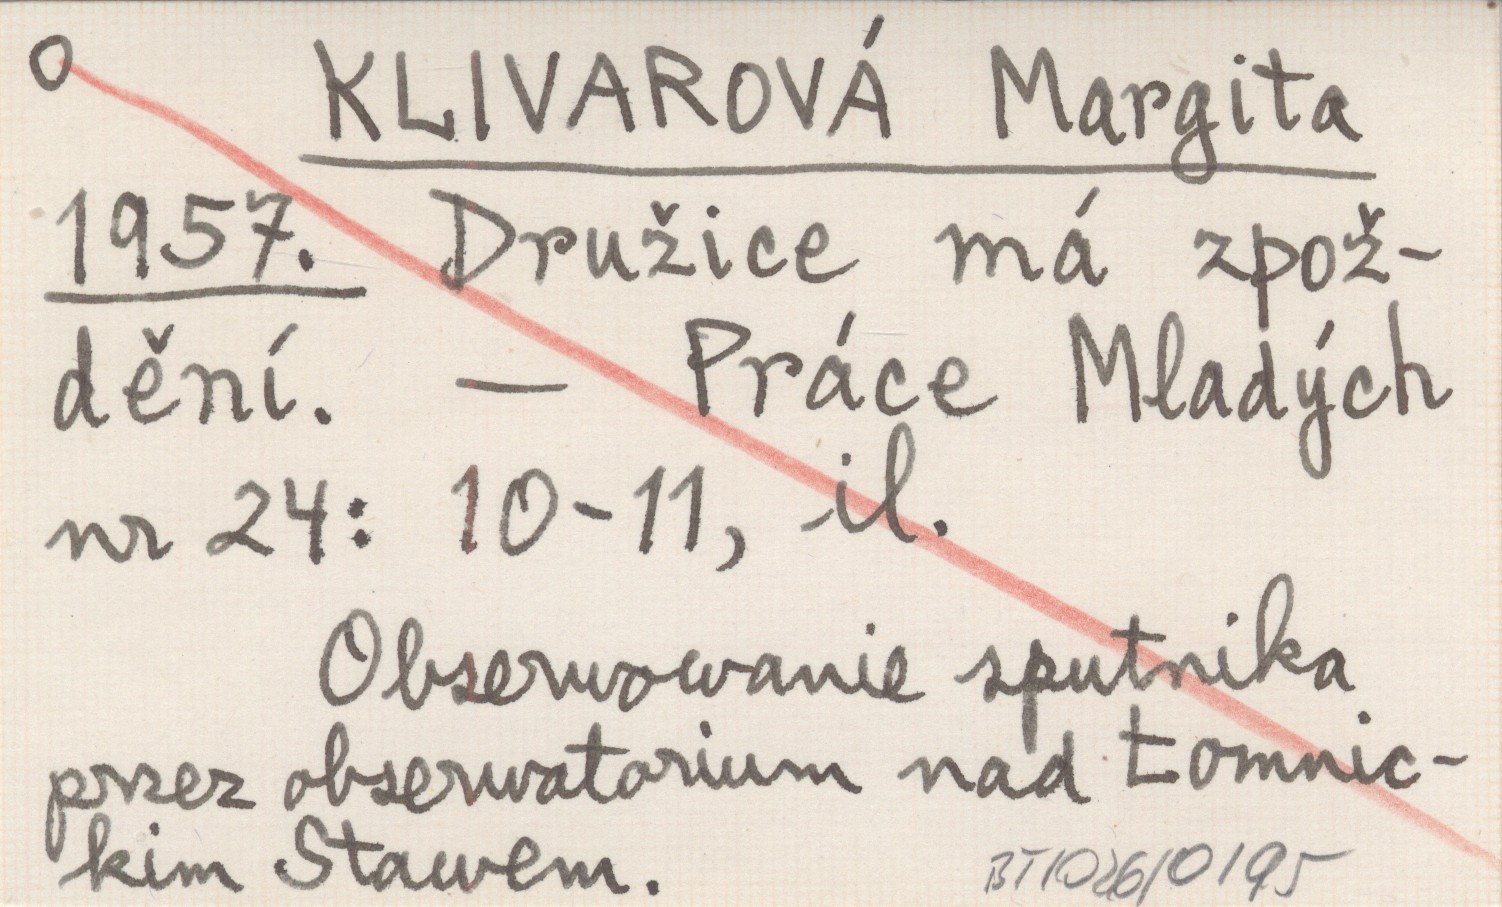 O KLIVAROVÁ Margita
1957. Družice má zpož-
dění. — Práce Mladých
nr 24: 10-11, il.
Obserwowanie sputnika
przez obserwatorium nad Łomnic-
kim Stawem.
BT1026/0195